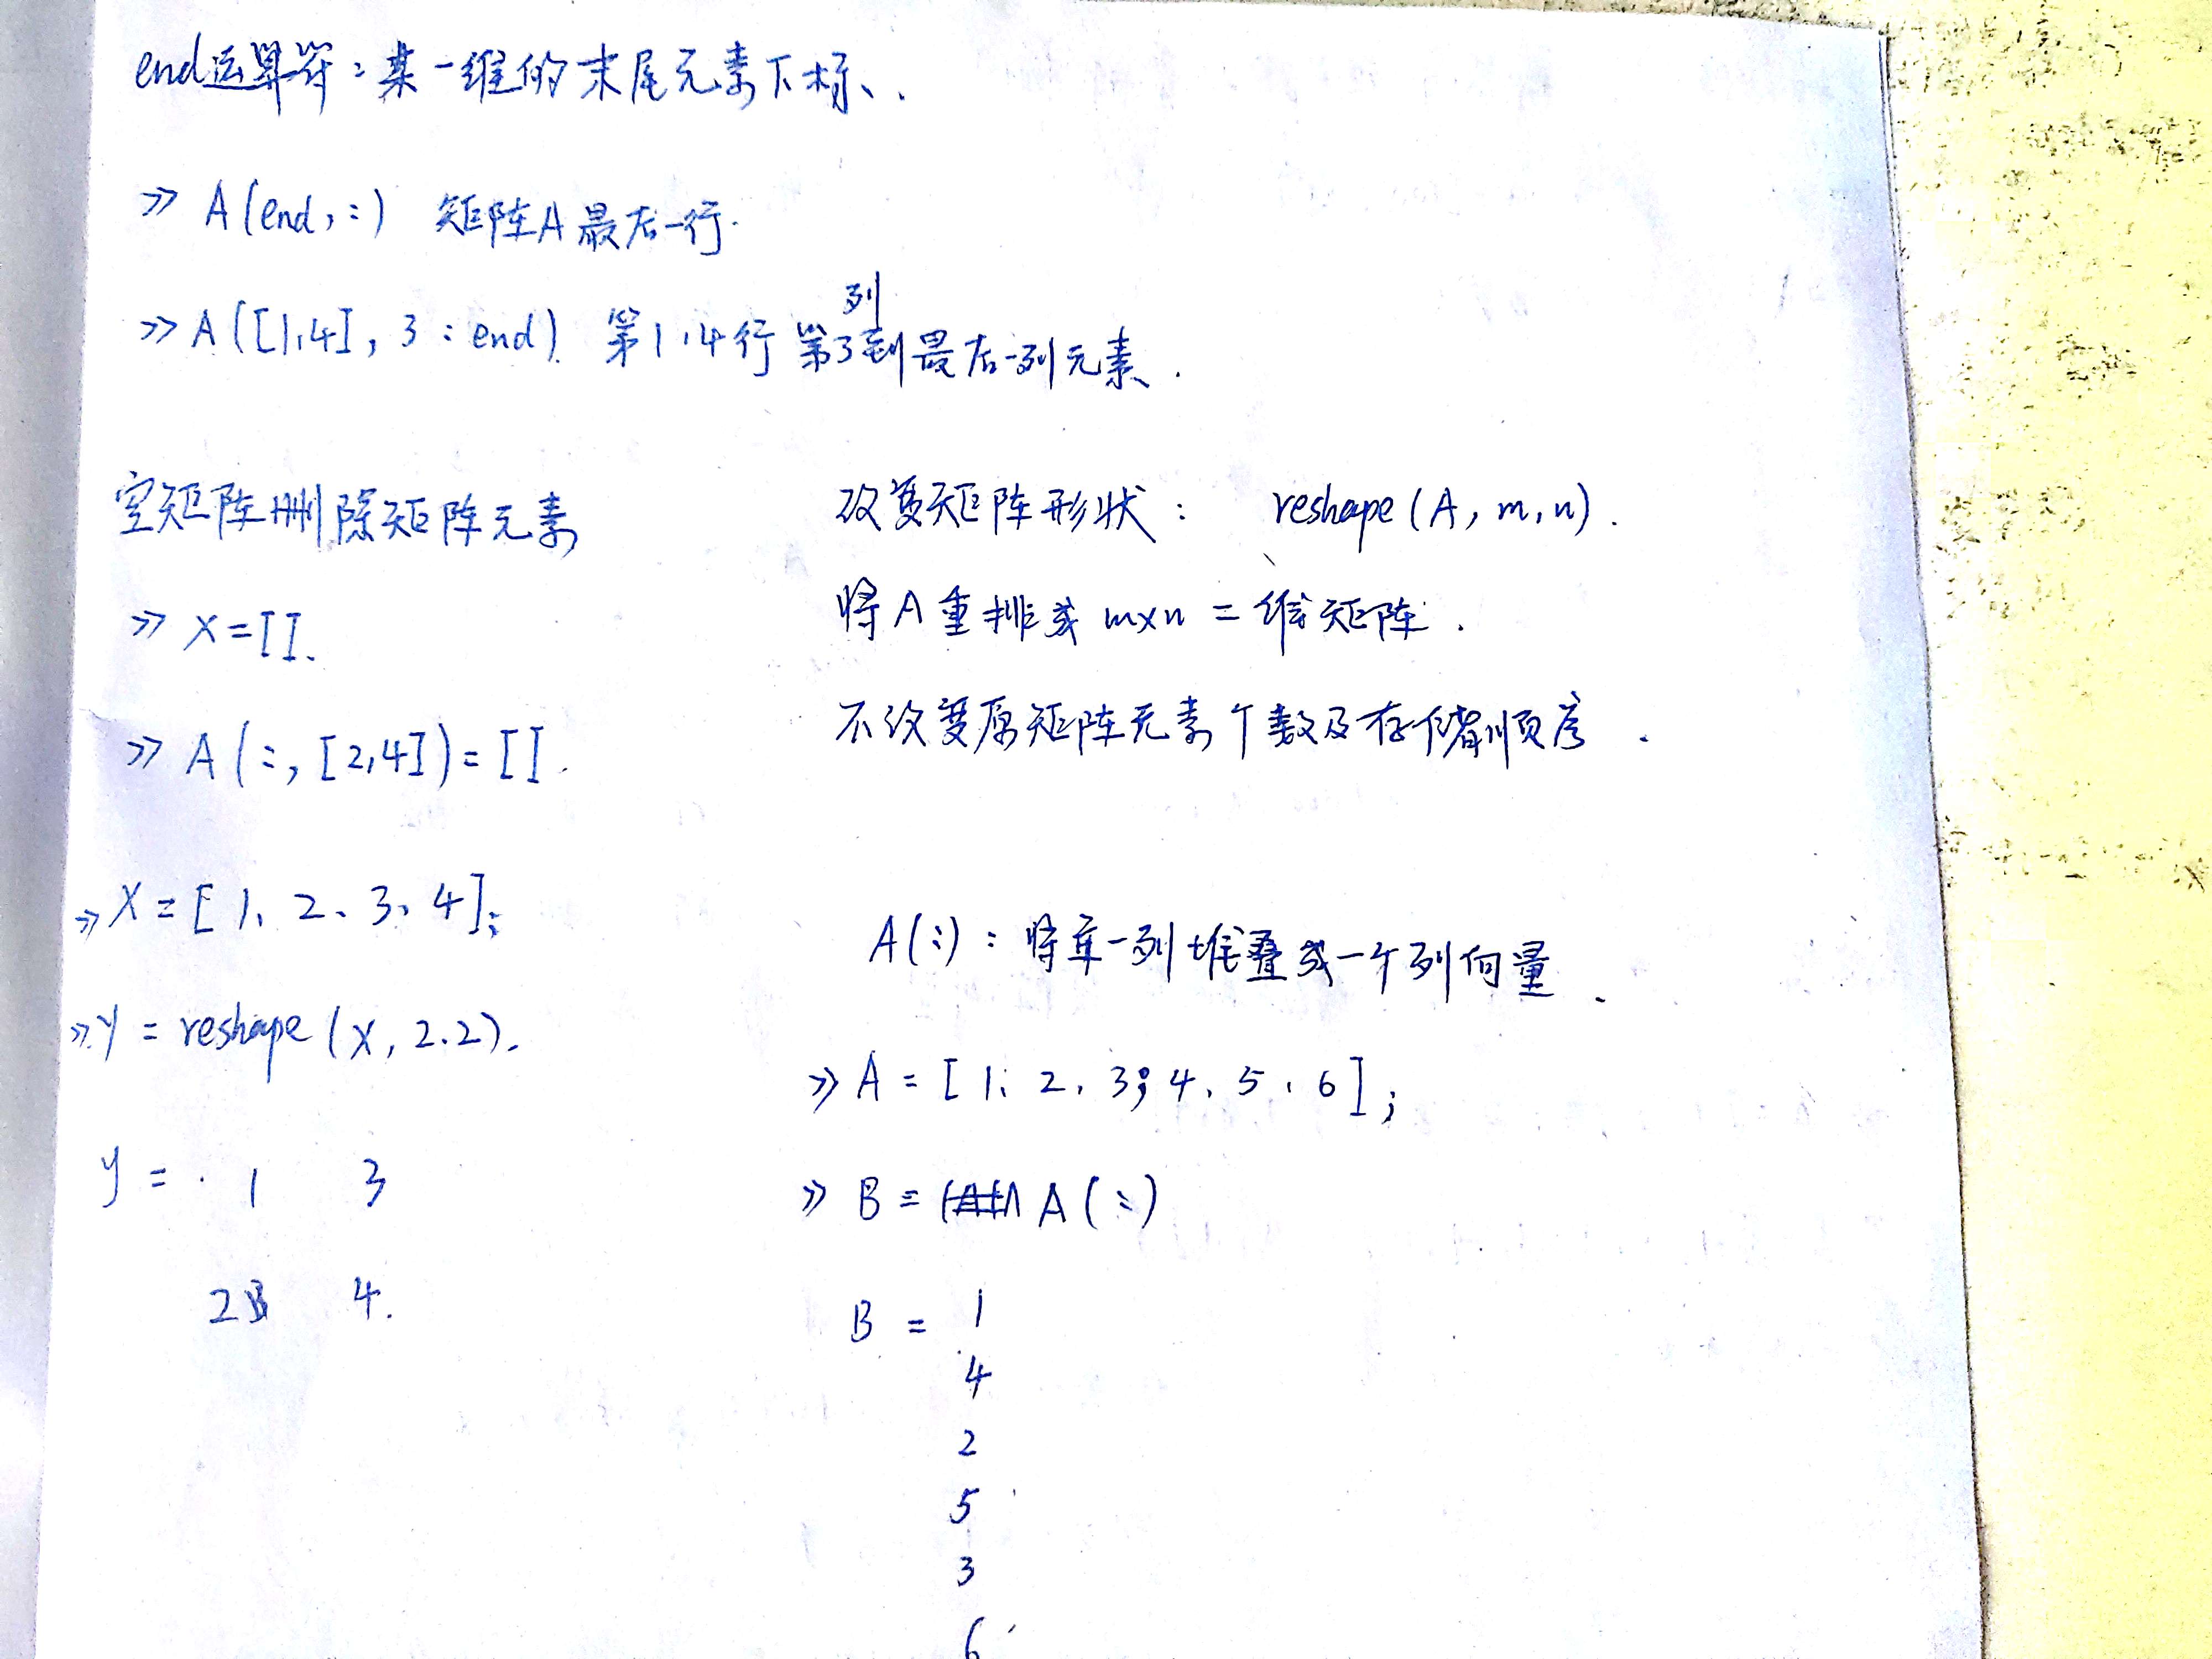 end运算符：某一维的末尾元素下标、.
>> A(end,:) 矩阵A最后一行.
列
>> A([1,4], 3:end). 第1,4行 第3到最后一列元素.
空矩阵删除矩阵元素
>> X=[].
>> A(:,[2,4])=[].
>> X=[1、2、3、4];
>> y=reshape(X, 2.2).
y = 1 3
2 4.
改变矩阵形状： reshape(A, m, n).
将A重排成 m×n 二维矩阵.
不改变原矩阵元素个数及存储顺序.
A(:)：将每一列堆叠成一个列向量.
>> A=[1、2、3;4、5、6];
>> B= A(:)
B = 1
4
2
5
3
6